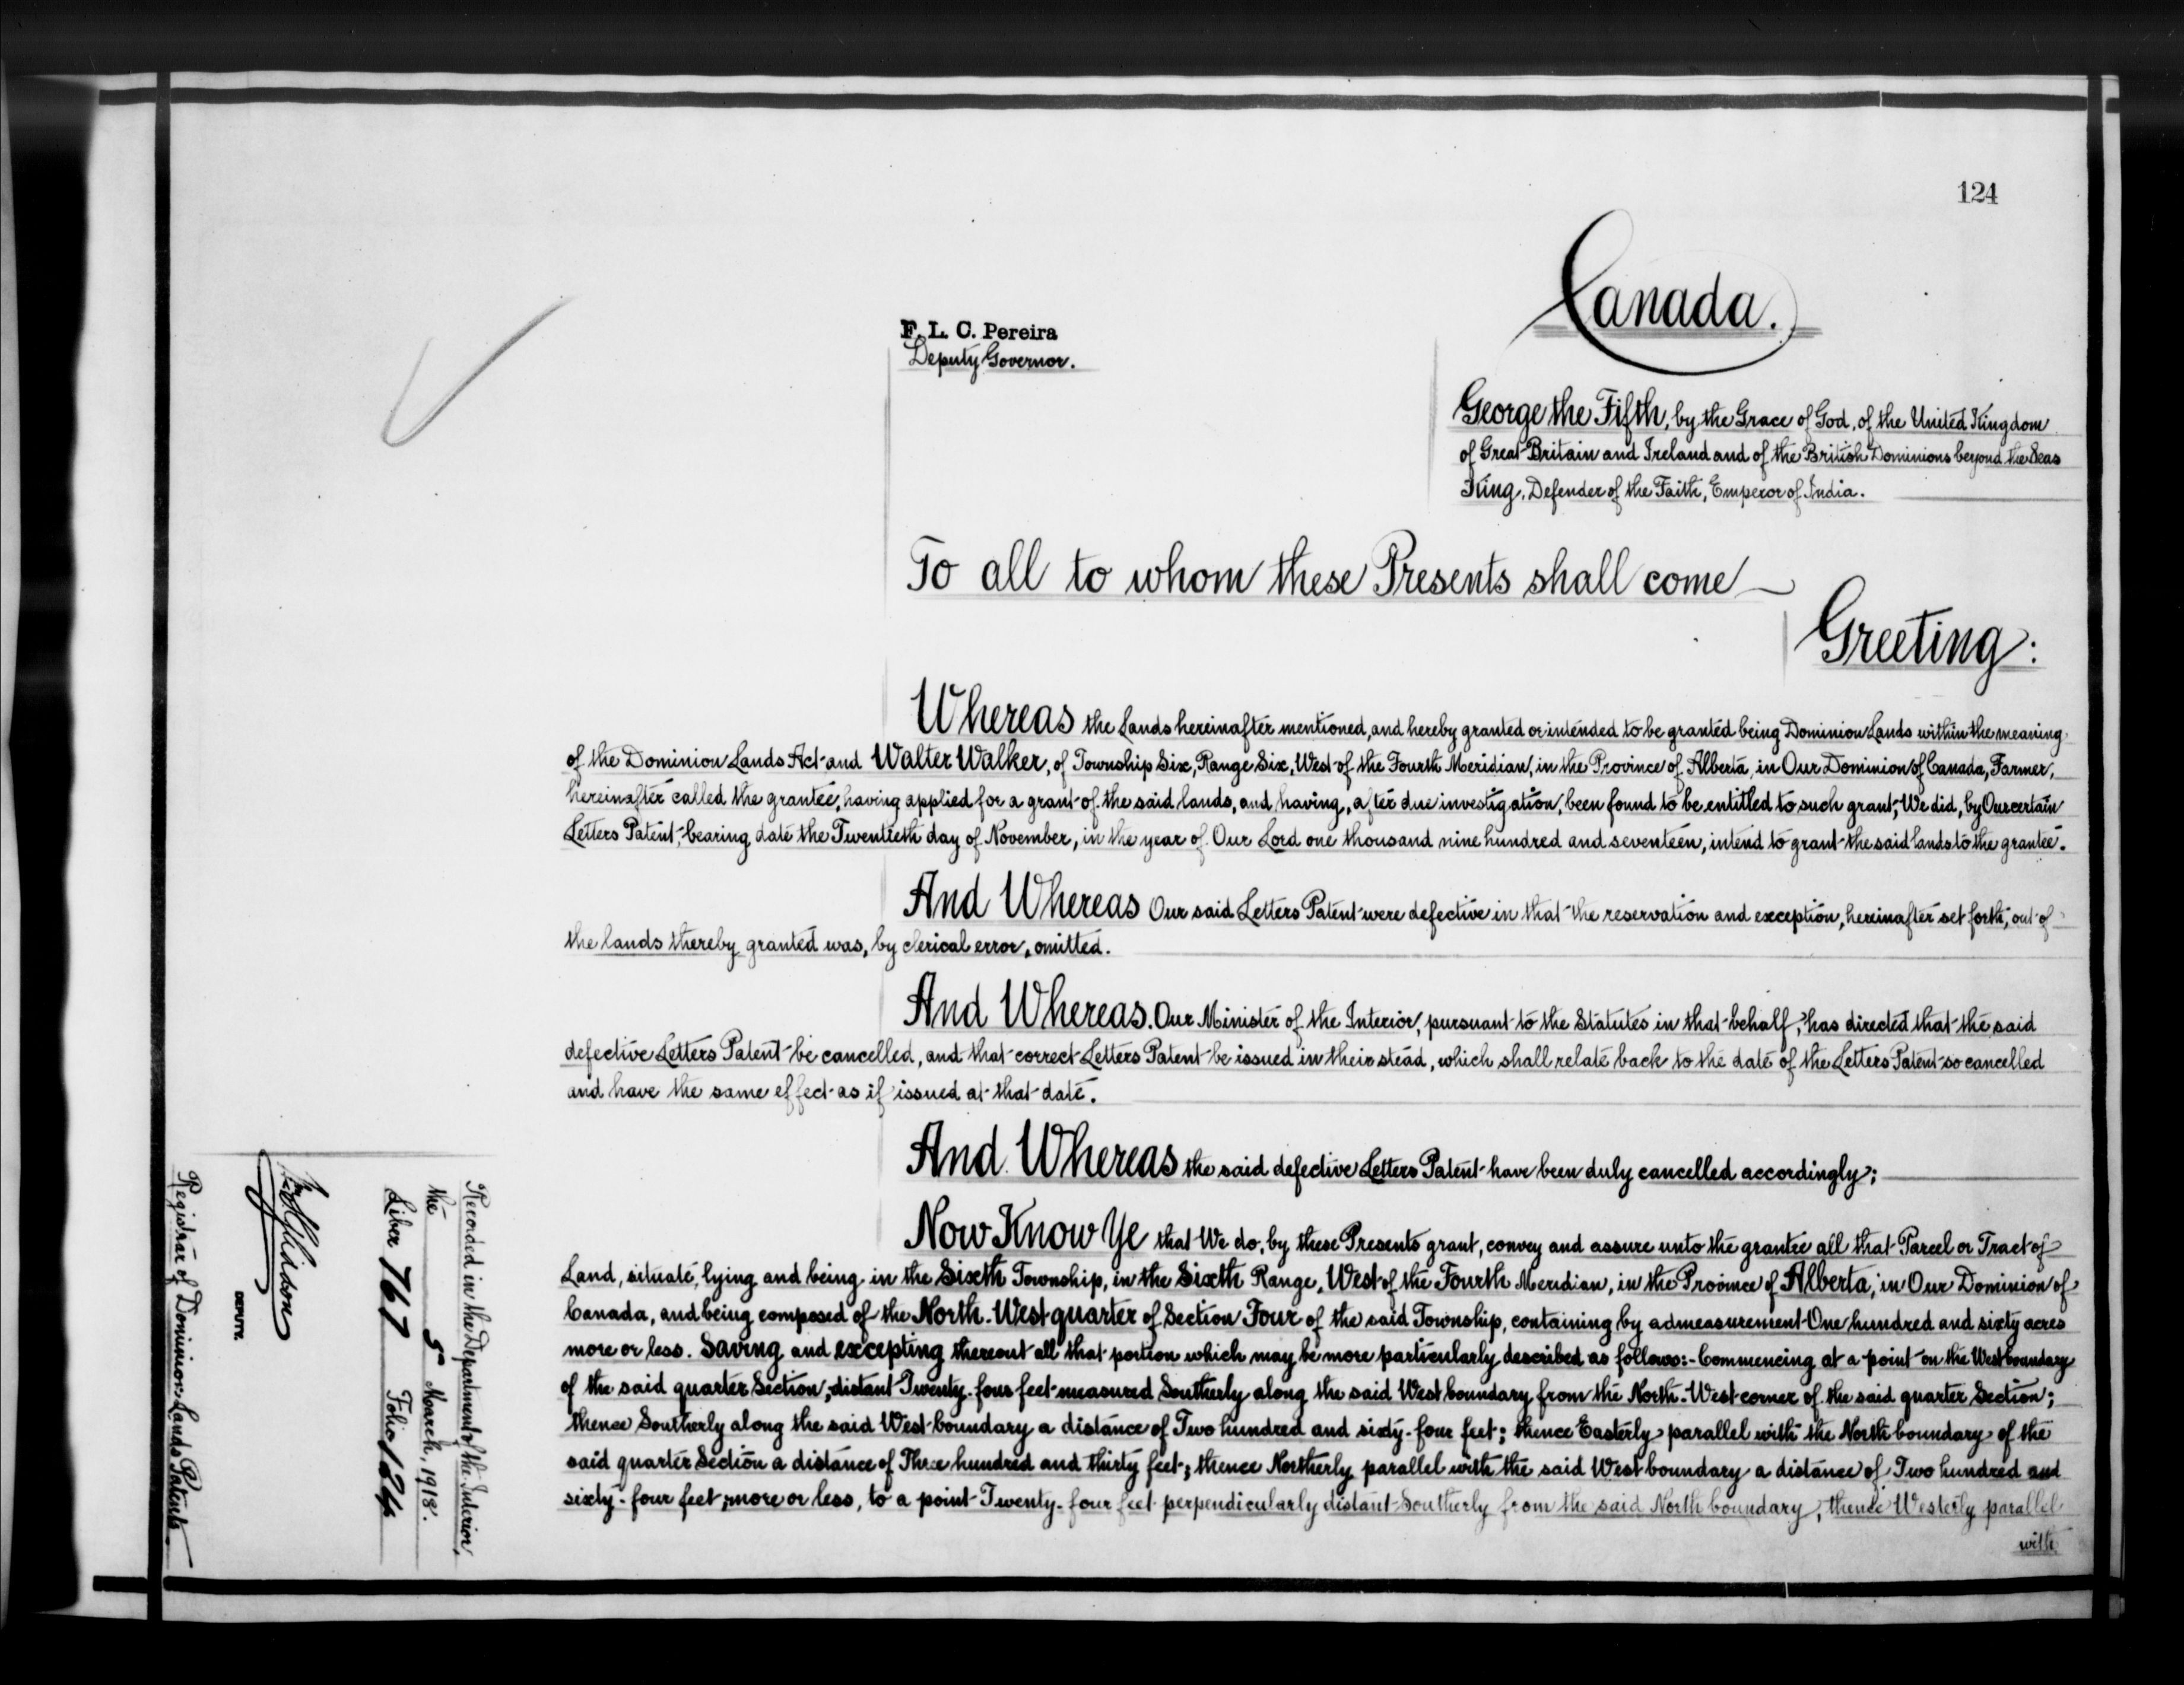 124
Canada.
F. L. C. Pereira
Deputy Governor.
George the Fifth, by the Grace of God, of the United Kingdom
of Great Britain and Ireland and of the British Dominions beyond the Seas
King, Defender of the Faith, Emperor of India.
To all to whom these Presents shall come
Greeting:
Whereas the Lands hereinafter mentioned, and hereby granted or intended to be granted being Dominion Lands within the meaning
of the Dominion Lands Act and Walter Walker, of Township Six, Range Six, West of the Fourth Meridian, in the Province of Alberta, in Our Dominion of Canada, Farmer,
hereinafter called the grantee, having applied for a grant of the said lands, and having, after due investigation, been found to be entitled to such grant, We did, by Our certain
Letters Patent, bearing date the Twentieth day of November, in the year of Our Lord one thousand nine hundred and seventeen, intend to grant the said lands to the grantee.
And Whereas Our said Letters Patent were defective in that the reservation and exception, hereinafter set forth, out of
the lands thereby granted was, by clerical error, omitted.
And Whereas. Our Minister of the Interior, pursuant to the Statutes in that behalf, has directed that the said
defective Letters Patent be cancelled, and that correct Letters Patent be issued in their stead, which shall relate back to the date of the Letters Patent so cancelled
and have the same effect as if issued at that date.
And Whereas the said defective Letters Patent have been duly cancelled accordingly;
Now Know Ye that We do, by these Presents grant, convey and assure unto the grantee all that Parcel or Tract of
Land, situate, lying and being in the Sixth Township, in the Sixth Range, West of the Fourth Meridian, in the Province of Alberta, in Our Dominion of
Canada, and being composed of the North-West quarter of Section Four of the said Township, containing by admeasurement One hundred and sixty acres
more or less. Saving and excepting thereout all that portion which may be more particularly described as follows:- Commencing at a point on the West boundary
of the said quarter Section, distant Twenty-four feet measured Southerly along the said West boundary from the North-West corner of the said quarter Section;
thence Southerly along the said West boundary a distance of Two hundred and sixty-four feet; thence Easterly parallel with the North boundary of the
said quarter Section a distance of Three hundred and thirty feet; thence Northerly parallel with the said West boundary a distance of Two hundred and
sixty-four feet, more or less, to a point Twenty-four feet perpendicularly distant Southerly from the said North boundary, thence Westerly parallel
with
Recorded in the Department of the Interior,
the 5 March, 1918.
Liber 767 Folio 124
DEPUTY.
Registrar of Dominion Lands Patents